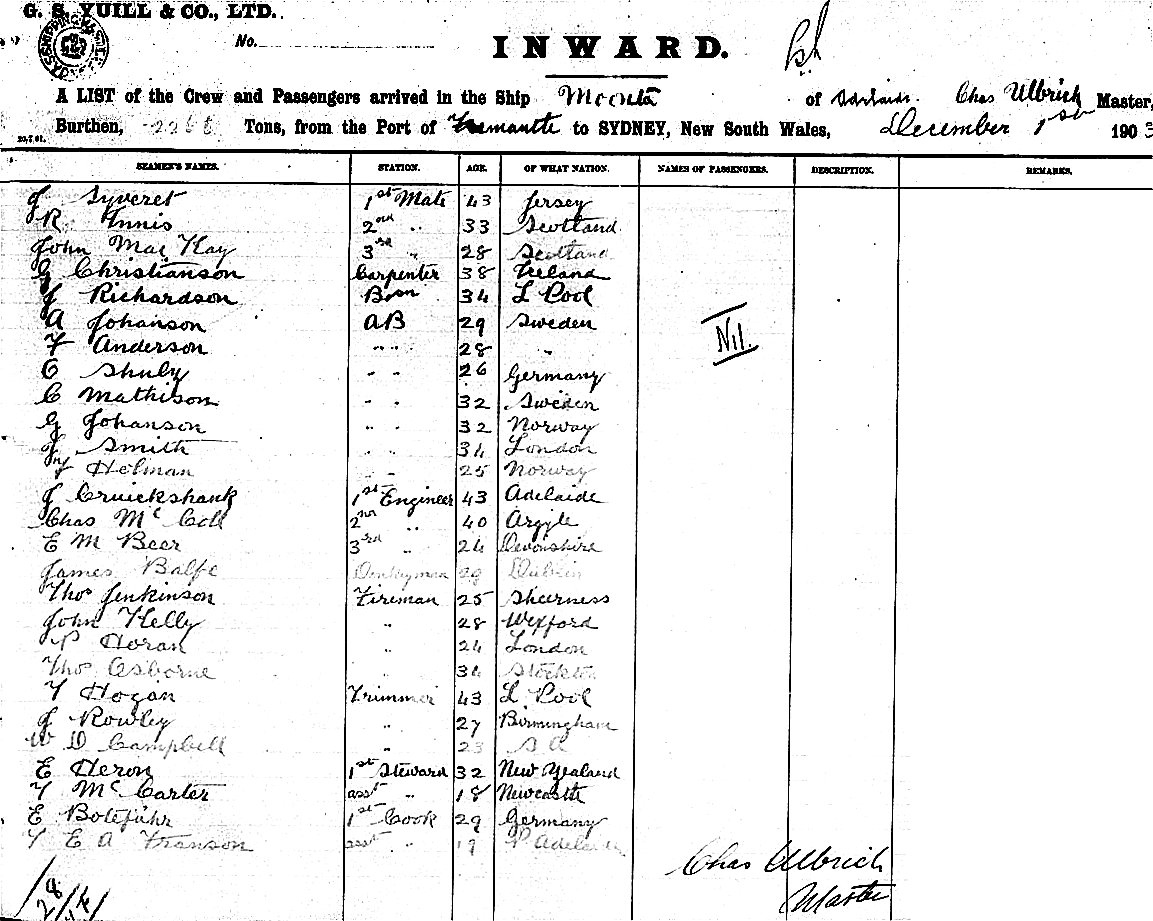 G. S. YUILL & CO., LTD.
No.
INWARD.
A LIST of the Crew and Passengers arrived in the Ship Moonta of Adelaide Chas Ulbrich Master,
Burthen, Tons, from the Port of Fremantle to SYDNEY, New South Wales, December 1st 1903
SEAMEN'S NAMES. STATION. AGE. OF WHAT NATION. NAMES OF PASSENGERS. DESCRIPTION. REMARKS.
J Syveret 1st Mate 43 Jersey
R Innis 2nd " 33 Scotland
John MacKay 3rd " 28 Scotland
G Christianson Carpenter 38 Iceland
J Richardson Bosn 34 L Pool
A Johanson AB 29 Sweden
F Anderson " " 28 "
Nil.
C Shuly " " 26 Germany
C Mathison " " 32 Sweden
G Johanson " " 32 Norway
J Smith " " 34 London
Helman " " 25 Norway
J Cruickshank 1st Engineer 43 Adelaide
Chas McColl 2nd " 40 Argyle
E M Beer 3rd " 24 Devonshire
James Balfe Donkeyman 29 Dublin
Thos Jenkinson Fireman 25 Sheerness
John Kelly " 28 Wexford
P Horan " 24 London
Thos Osborne " 34 Stockton
T Hogan Trimmer 43 L Pool
J Rowley " 27 Birmingham
W D Campbell " 23 S A
E Heron 1st Steward 32 New Zealand
T McCarter asst " 18 Newcastle
E Botefuhr 1st Cook 29 Germany
T E A Franson asst " 19 P Adelaide
Chas Ulbrich
Master